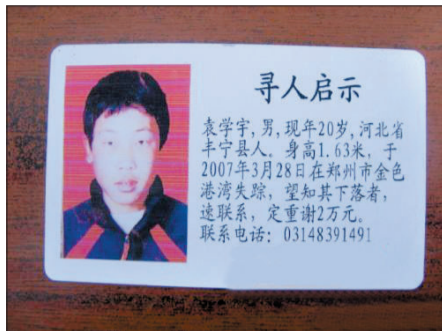 寻人启示
袁学宇,男,现年20岁,河北省
丰宁县人。身高1.63米,于
2007年3月28日在郑州市金色
港湾失踪,望知其下落者,
速联系,定重谢2万元。
联系电话:03148391491